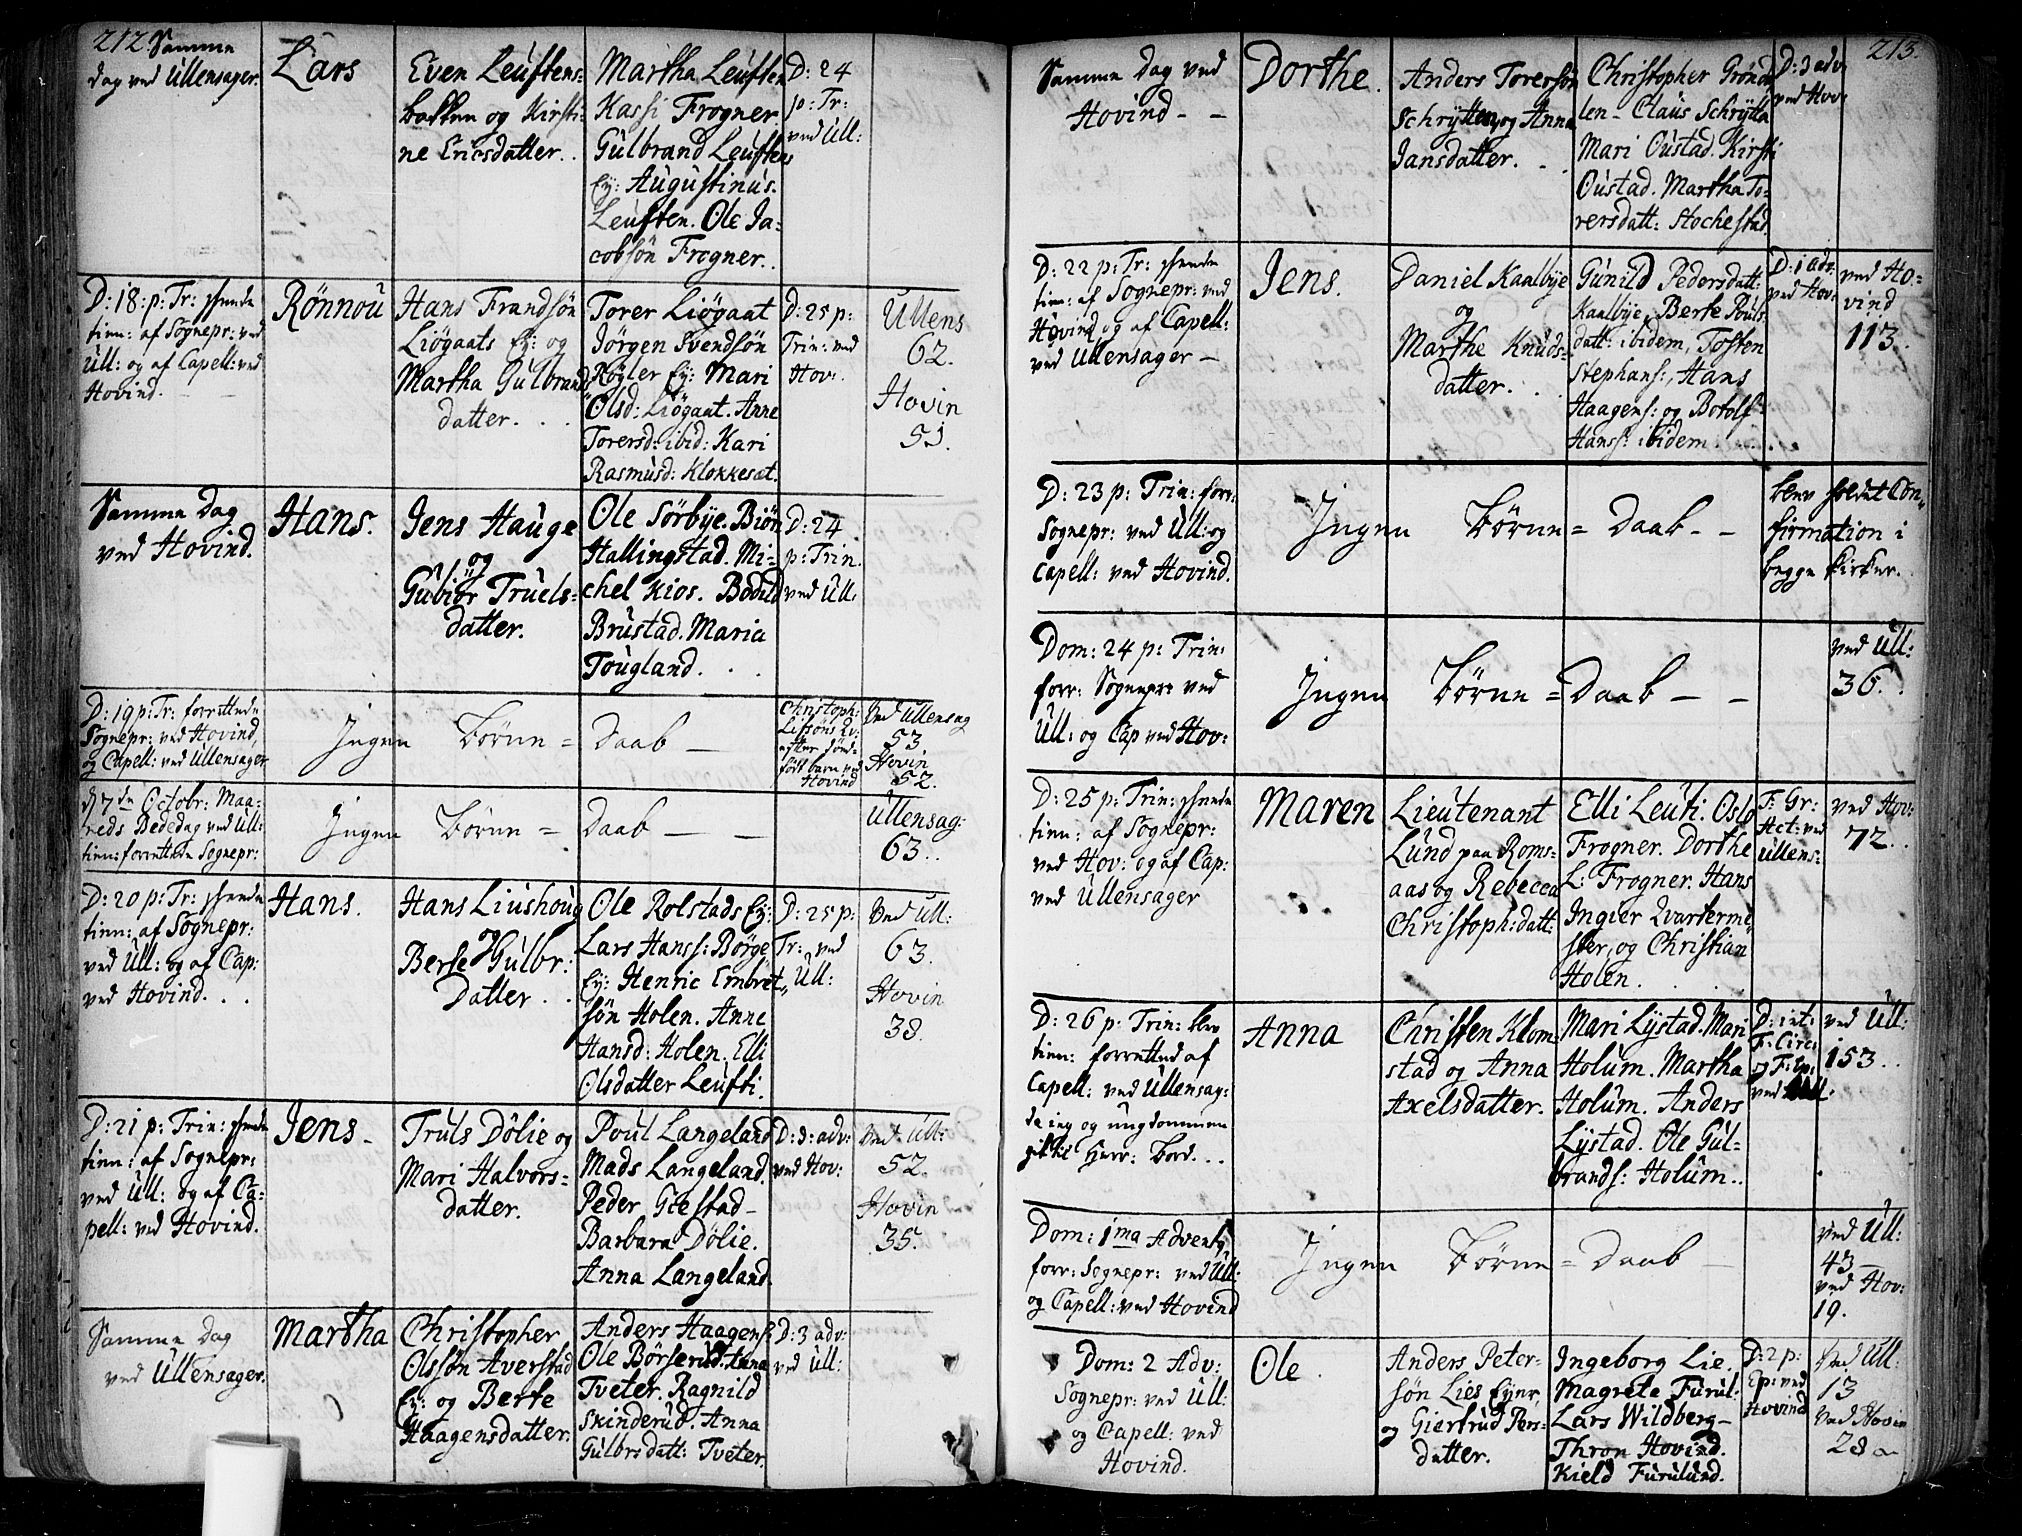 212 Samme
dag ved Ullensager.
Lars
Even Leuftens-
bakken og Kirsti-
ne Ericsdatter.
Martha Leuften
Kassi Frogner.
Gulbrand Leuftens
Ey: Augustinus
Leuften. Ole Ja-
cobsön Frogner.
D: 24
p: Tr:
ved Ull:
D: 18: p: Tr:
tien: af Sognepr: ved
Ull: og af Capell: ved
Hovind.
Rönnou
Hans Frandsön
Liögaats Ey: og
Martha Gulbrands
datter.
Torer Liögaat
Jörgen Svendsön
Røgler Ey: Mari
Olsd: Liögaat. Anne
Torersd: ibid: Kari
Rasmusd: Klokkesæt.
D: 25 p:
Trin: ved
Hov:
Ullens
62.
Hovin
51.
Samme Dag
ved Hovind.
Hans.
Jens Hauge
og
Gubiör Truels-
datter.
Ole Sörbye. Biön
Hallingstad. Mi-
chel Kios. Bodild
Brustad. Maria
Tougland.
D: 24
p: Trin.
ved Ull:
D: 19 p: Tr: forrettede
Sognepr: ved Hovind,
og Capell: ved Ullensager
Ingen Börne = Daab
Christoph:
efter död-
födt barn ved
Hovind
Ved Ullensag
53
Hovin
52.
d 7de Octobr: Maa-
neds Bededag ved Ull:
tien: forrettede Sognepr:
Ingen Börne = Daab
Ullensag:
63.
D: 20 p: Tr:
tien: af Sognepr:
ved Ull: og af Cap:
ved Hovind.
Hans.
Hans Liushoug
og
Berte Gulbr:
Datter
Ole Rolstads Ey:
Lars Hanss: Börge
Ey: Henric Embret-
sön Holen. Anne
Hansd: Holen. Elli
Olsdatter Leufti.
D: 25 p:
Tr: ved
Ull:
Ved Ull:
63.
Hovin
38.
D: 21 p: Trin:
tien: af Sognepr:
ved Ull: og af Ca-
pell: ved Hovind.
Jens
Truls Dölie og
Mari Halvors-
datter.
Poul Langeland
Mads Langeland.
Peder Giestad
Barbara Dölie.
Anna Langeland.
D: 3: adv:
ved Hov:
Ved Ull:
52.
Hovin
35.
Samme Dag
ved Ullensager.
Martha
Christopher
Olssön Averstad
Ey: og Berte
Haagensdatter.
Anders Haagens:
Ole Börserud. Anna
Tveter. Ragnild
Skinderud. Anna
Gulbrsdatt: Tveter.
D: 3 adv:
ved Ull:
213.
Samme Dag ved
Hovind
Dorthe.
Anders Torersön
Schrytten, og Anna
Jansdatter.
Christopher Grönda
len Claus Schrytta
Mari Oustad. Kirsti
Oustad. Martha To-
rersdatt: Hochestad.
D: 3 adv:
ved Hov:
D: 22 p: Tr:
tien: af Sognepr: ved
Hovind og af Capell:
ved Ullensager
Jens.
Daniel Kaalbye
og
Marthe Knuds-
datter.
Gunild Pedersdatt:
Kaalbye, Berte Pouls
datt: ibidem, Tosten
Stephans:, Hans
Haagens: og Botolf
Hans: ibidem.
D: 1 adv:
ved Hov:
ved Ho-
vind
113.
D: 23 p: Trin: forr:
Sognepr: ved Ull: og
Capell: ved Hovind.
Ingen Börne = Daab
blev holdet Con-
firmation i
begge Kirker.
Dom: 24 p: Trin:
forr: Sognepr: ved
Ull: og Cap ved Hov:
Ingen Börne = Daab
ved Ull:
36.
D: 25 p: Trin:
tien: af Sognepr:
ved Hov: og af Cap:
ved Ullensager
Maren
Lieutenant
Lund paa Roms-
aas og Rebecca
Christoph: datt:
Elli Leuti. Oslo
Frogner. Dorthe
L: Frogner. Hans
Ingier Qvarterme-
ster, og Christian
Holen.
ved
Ullens:
ved Hov:
72.
D: 26 p: Trin: blev
tien: forretted af
Capell: ved Ullensag:
og ungdommen
gik til Herr: Bord.
Anna
Christen Klom
stad og Anna
Axelsdatter.
Mari Lystad. Mari
Holum. Martha
Holum. Anders
Lystad. Ole Gul-
brands: Holum.
D: int:
F: Circ:
og F: Ep:
ved Ull:
ved Ull:
153.
Dom: 1ma Advent,
forr: Sognepr: ved Ull:
og Capell: ved Hovind
Ingen Börne = Daab
ved Ull:
43
ved Hov:
19.
Dom: 2 Adv:
Sognepr: ved Ull:
og Capell: ved
Hovind.
Ole.
Anders Peter-
sön Lies Eyer,
og Giertrud Pers-
datter.
Ingeborg Lie.
Magrete Furul:
Lars Wildberg
Thron Hovind.
Kield Furulund.
D: 2 p:
Ep: ved
Hovind
Ved Ull:
13
Ved Hovin
28